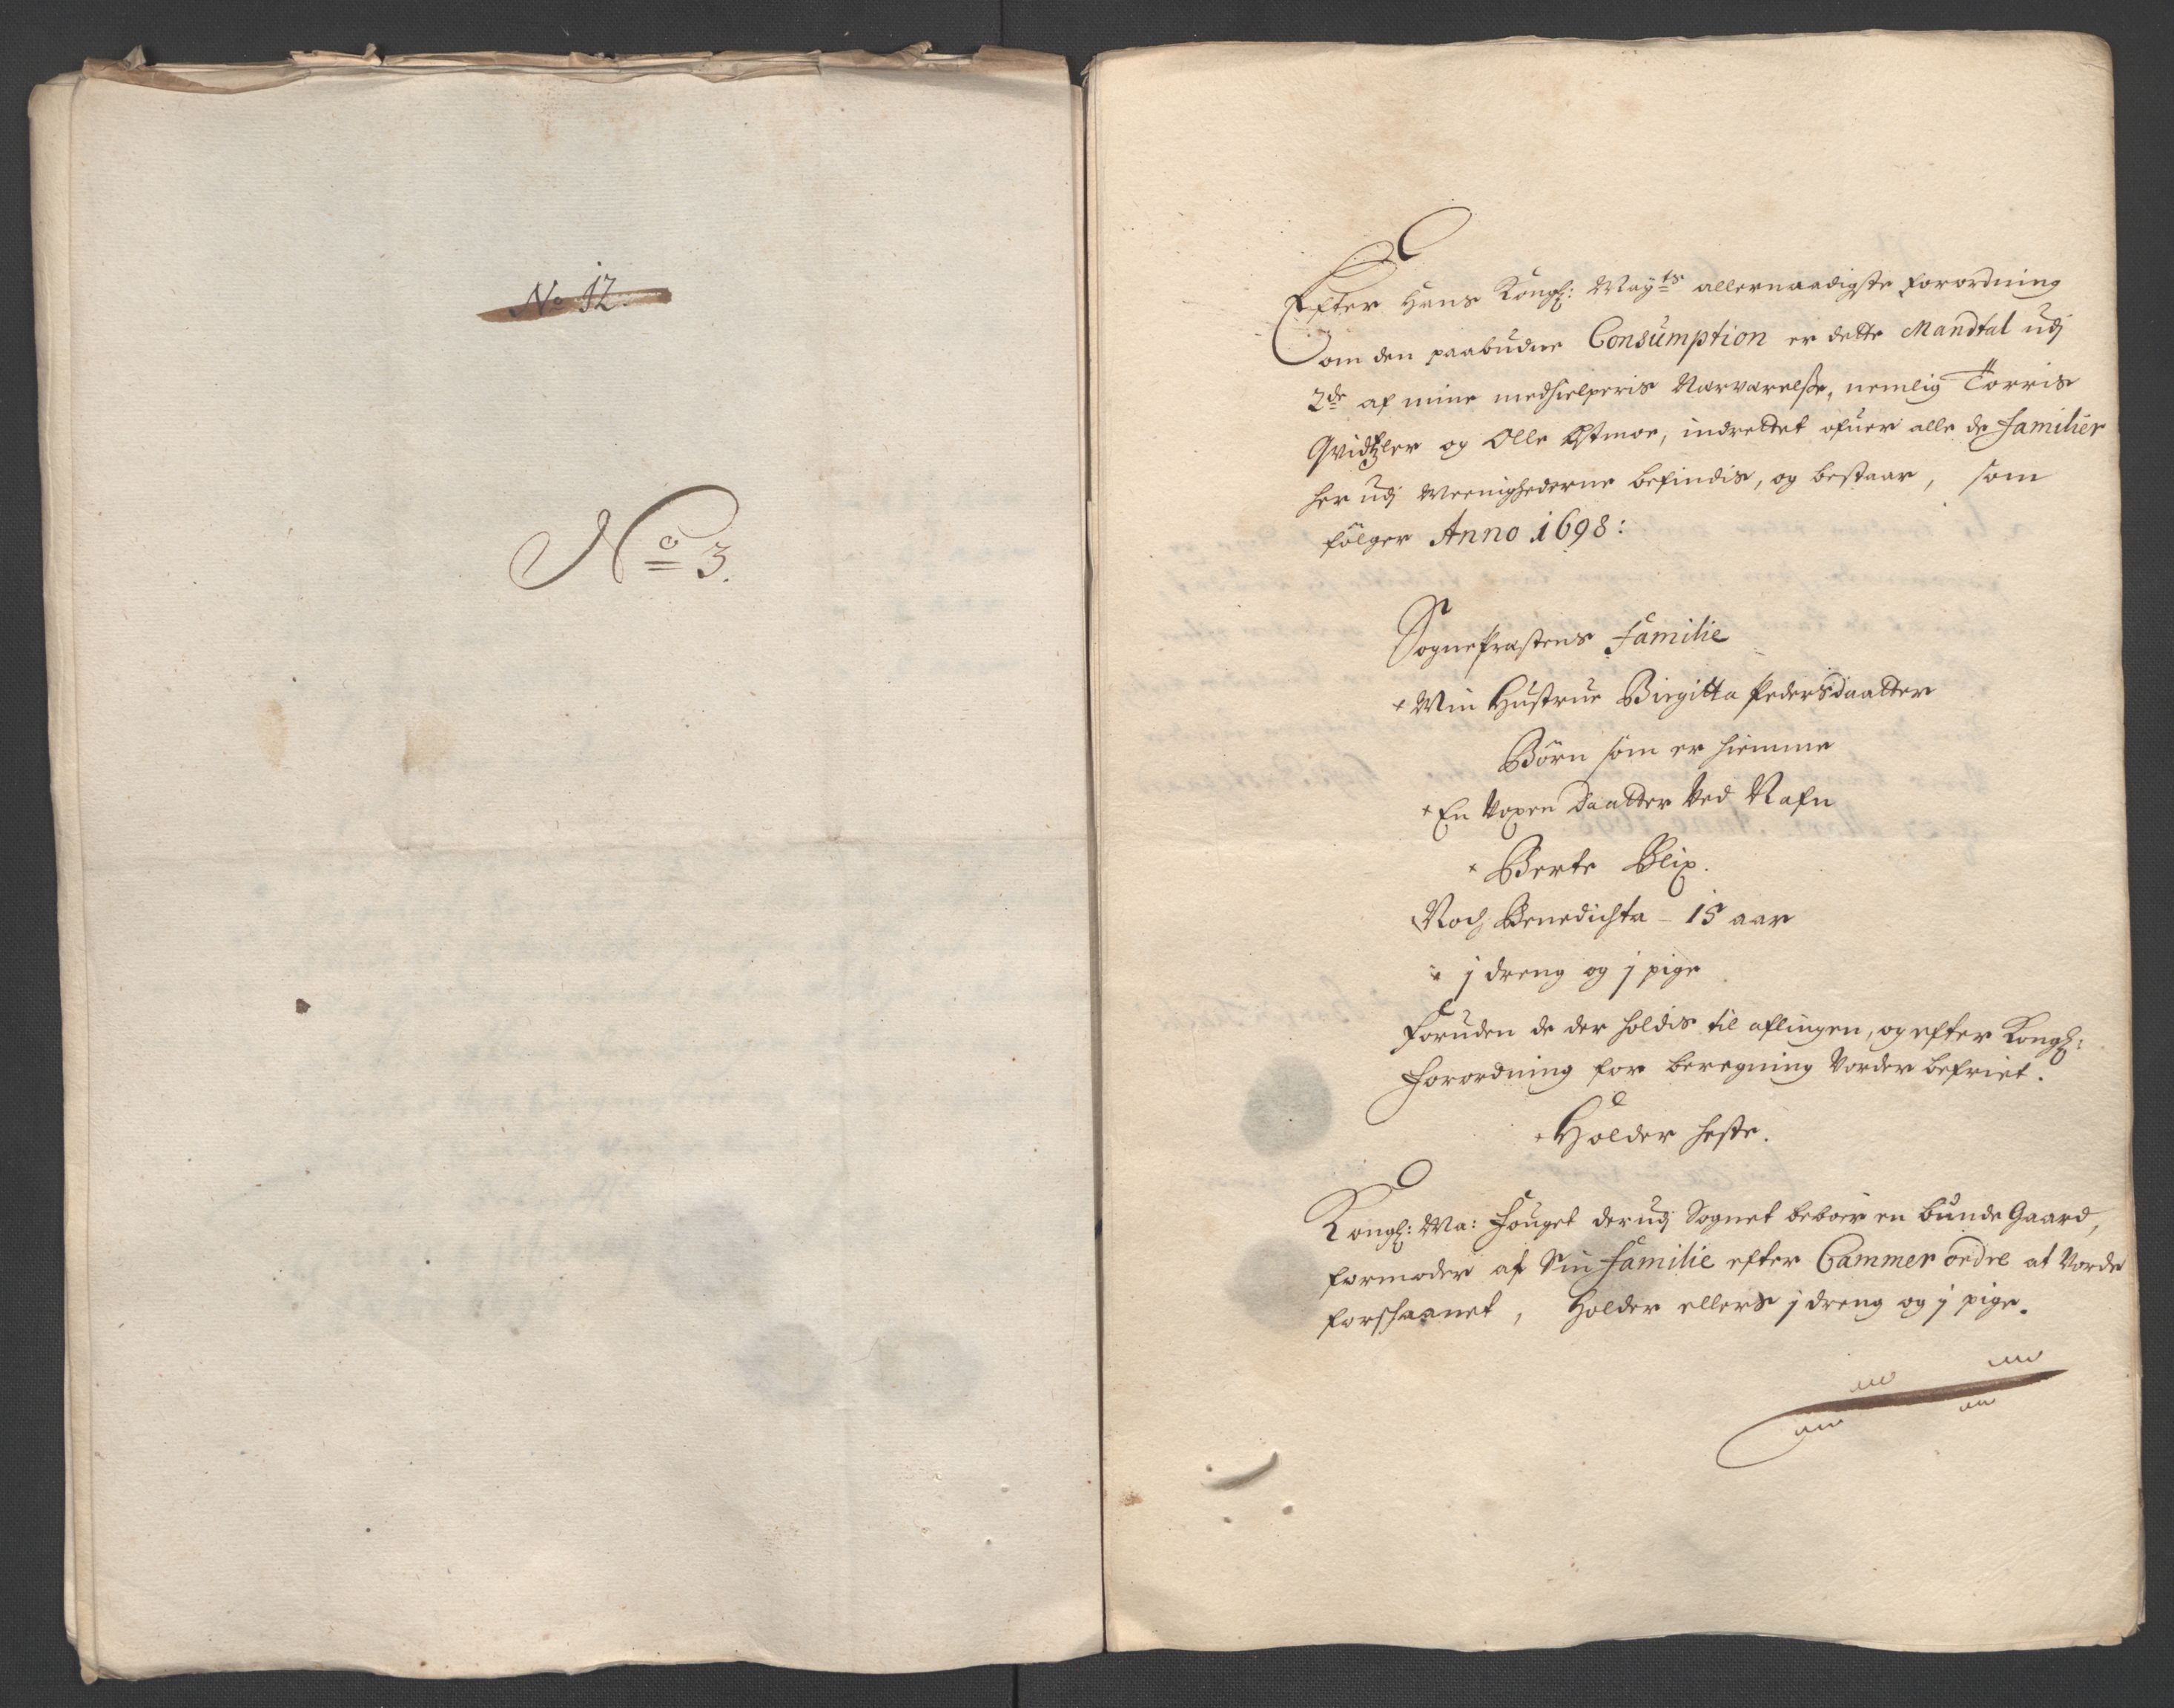 No 12.
No 3.
Efter Hans Kongl: Mayts allernaadigste forordning
om den paabudne Consumption er dette Mandtal udj
2de af mine medhielperis Nærværelse, nemlig Torris
og Olle Østmoe, indrettet ofuer alle de familier
her udj Meenighederne befindis, og bestaar, som
følger Anno 1698:
Sognepræstens Familie
+ Min Hustrue Birgitta Pedersdaatter
Børn som er hiemme
+ En Voxen Daatter ved Nafn
+ Berte Blix.
Noch Benedichta - 15 aar
+ j dreng og j pige
foruden de der holdis til aflingen, og efter Kongl:
forordning for beregning vorder befriet.
+ Holder heste.
Kongl: Ma: fouget der udj Sognet beboer en bunde Gaard,
formoder af Sin familie efter Cammer ordre at vorde
forschaanet, Holder ellers j dreng og j pige.